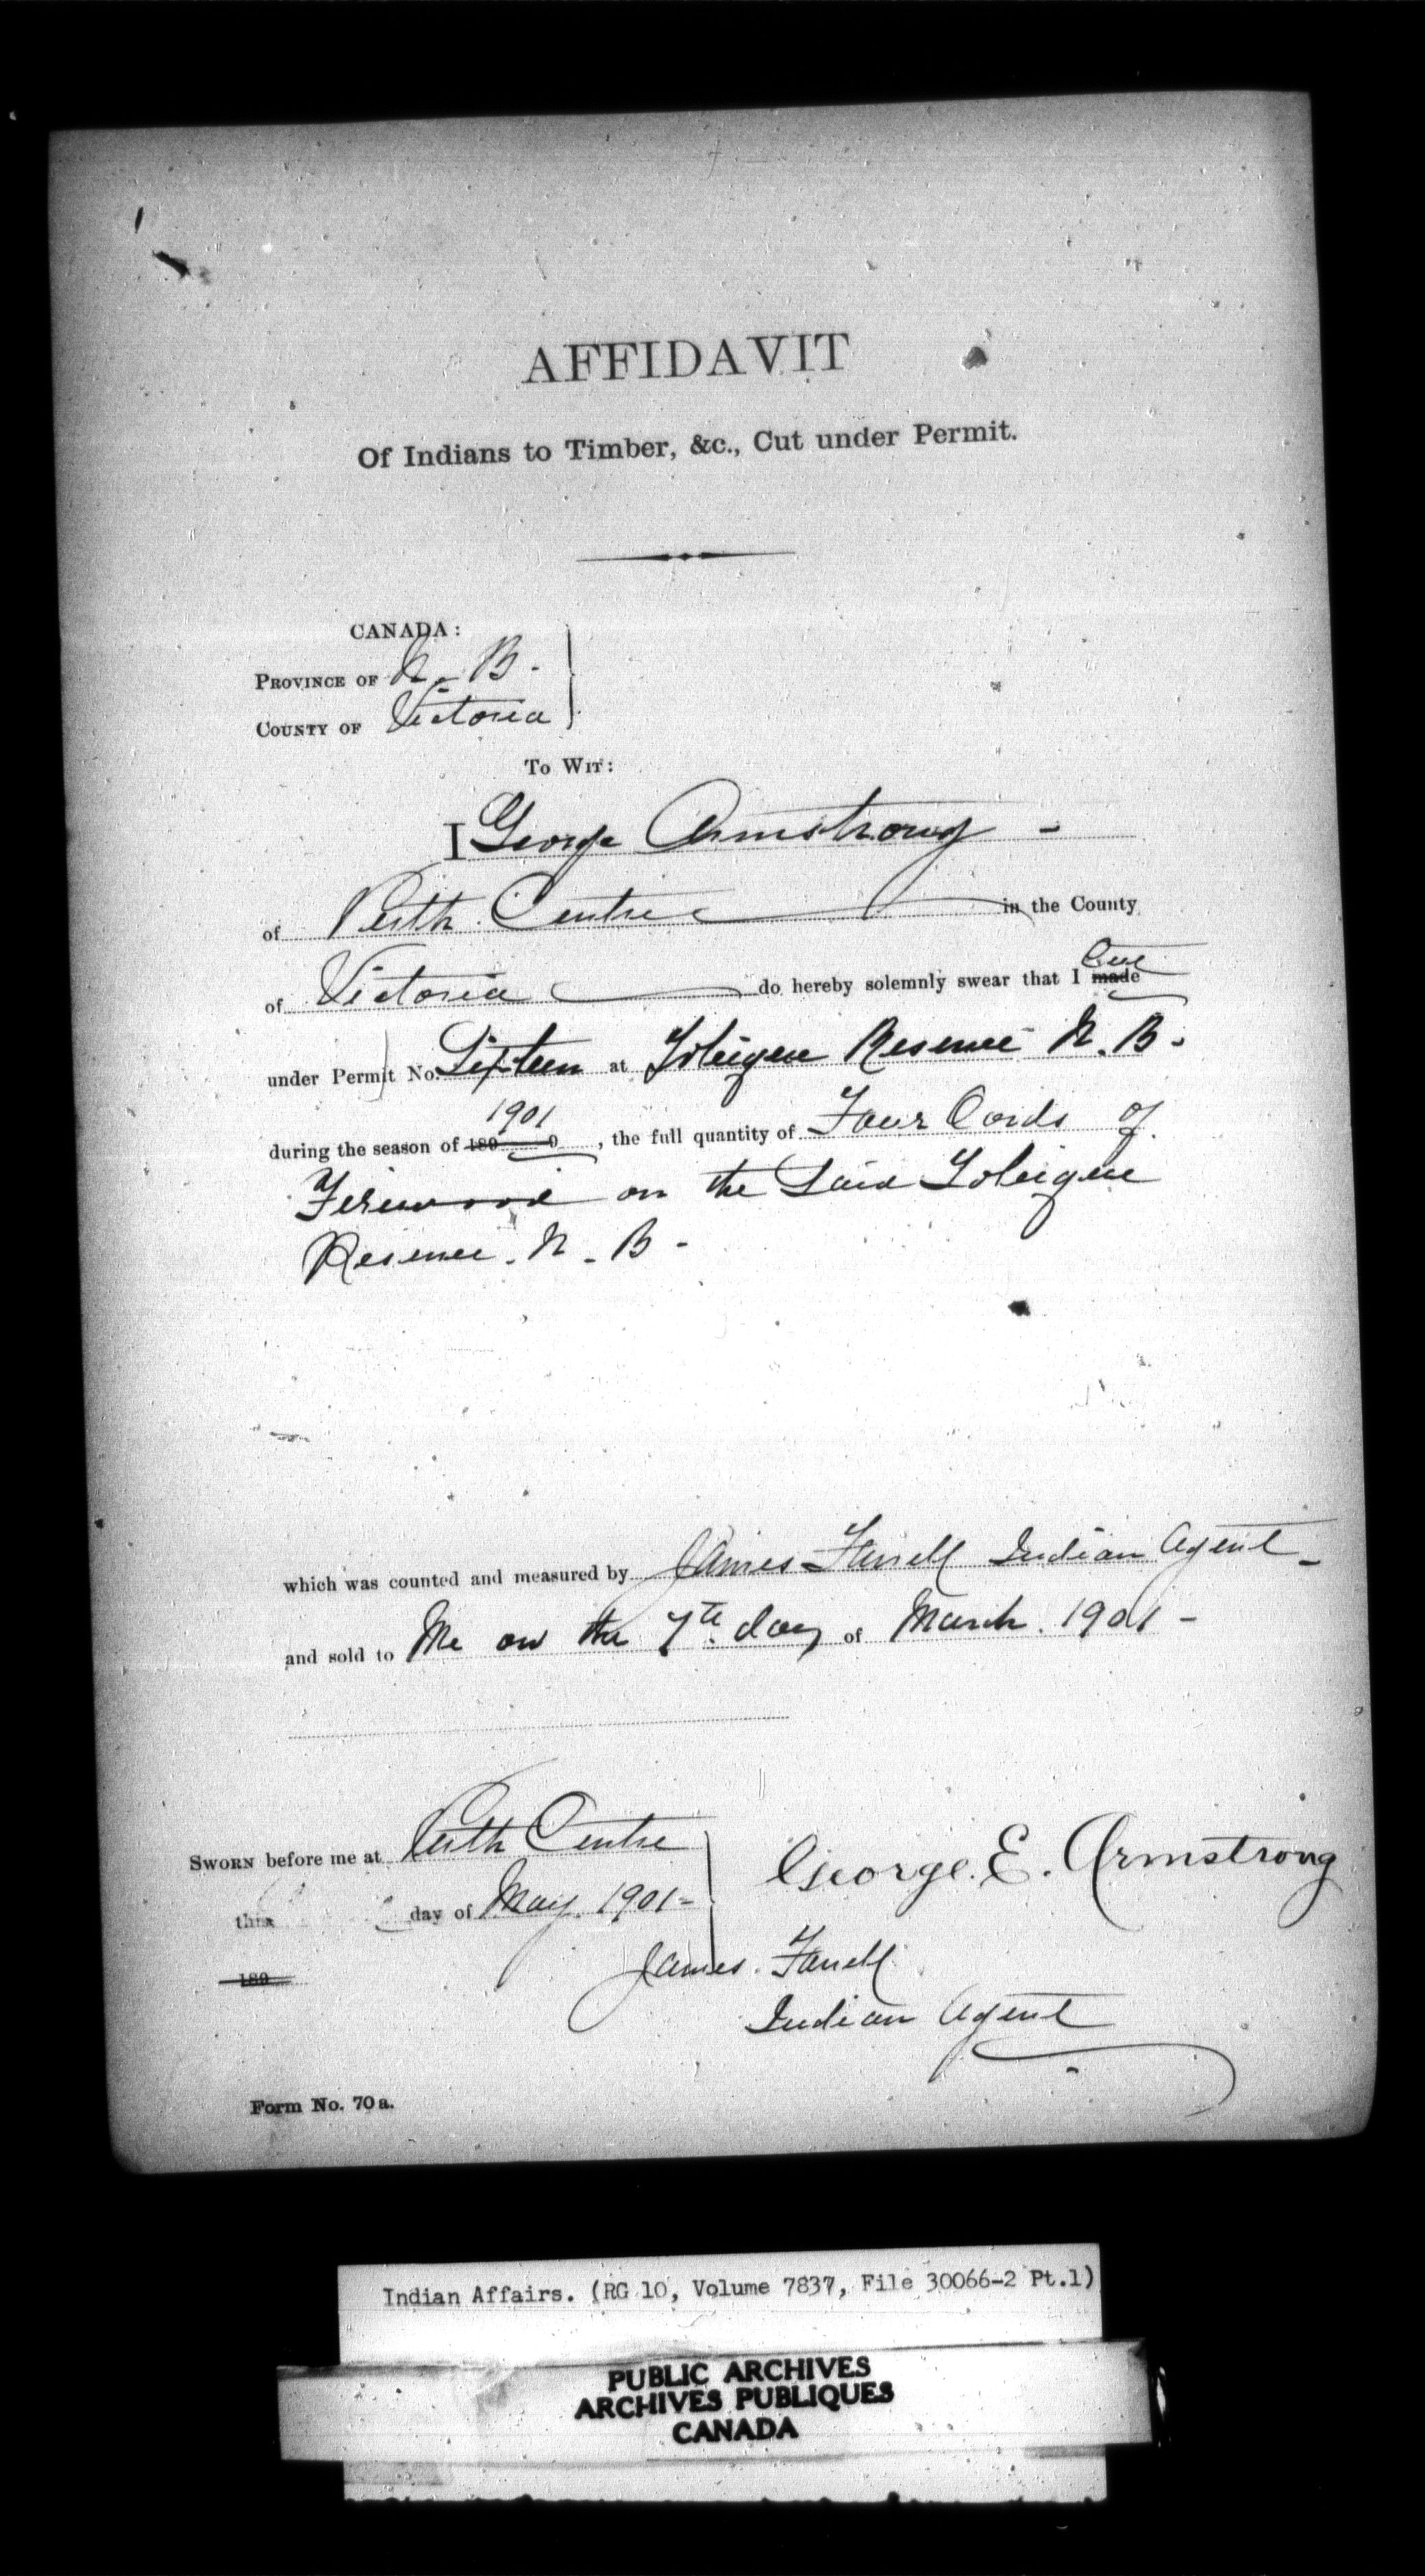 AFFIDAVIT
Of Indians to Timber, &c., Cut under Permit.
CANADA:
PROVINCE OF N. B.
COUNTY OF Victoria
TO WIT:
I George Armstrong -
of Perth Centre in the County
of Victoria do hereby solemnly swear that I made Cut
under Permit No. Sixteen at Tobique Reserve N. B.
1901
during the season of 189 0, the full quantity of Four Cords of
Firewood on the Said Tobique
Reserve. N. B -
which was counted and measured by James Farrell Indian Agent -
and sold to Me on the 7th day of March. 1901 -
SWORN before me at Perth Centre
this day of May. 1901 -
189
George. E. Armstrong
James. Farrell
Indian Agent
Form No. 70a.
Indian Affairs. (RG 10, Volume 7837, File 30066-2 Pt.1)
PUBLIC ARCHIVES
ARCHIVES PUBLIQUES
CANADA